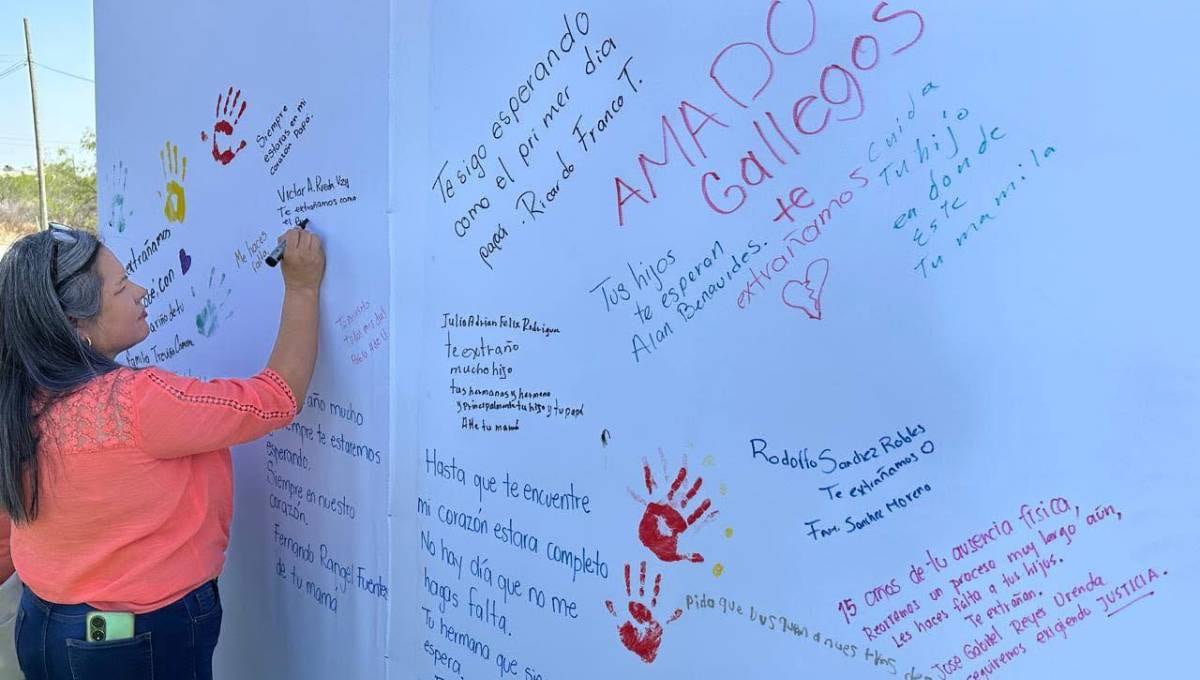 Siempre
estaras en mi
corazón Papá.
Victor A. Rueda
Te extrañamos como
el
Me haces
falta.
extrañamos
con
cariño de tu
Familia Treviño
mucho
siempre te estaremos
esperando.
Siempre en nuestro
corazón.
Fernando Rangel Fuentes
de tu mamá
Te sigo esperando
como el primer dia
papá. Ricardo Franco T.
AMADO
Gallegos
te
extrañamos
Cuida
Tu hijo
en donde
Este
Tu mamila
Tus hijos
te esperan
Alan Benavides.
Julio Adrian Felix Rodriguez
te extraño
mucho hijo
tus hermanas y hermano
y principalmente tu hijo y tu papá
Atte tu mamá
Hasta que te encuentre
mi corazón estara completo
No hay día que no me
hagas falta.
Tu hermana que
espera.
Rodolfo Sanchez Robles
Te extrañamos
Fam. Sanchez Moreno
pido que busquen a nuestros
15 años de tu ausencia física,
Recorremos un proceso muy largo aún,
Les haces falta a tus hijos.
Te extrañan.
José Gabriel Reyes Urenda
seguiremos exigiendo JUSTICIA.